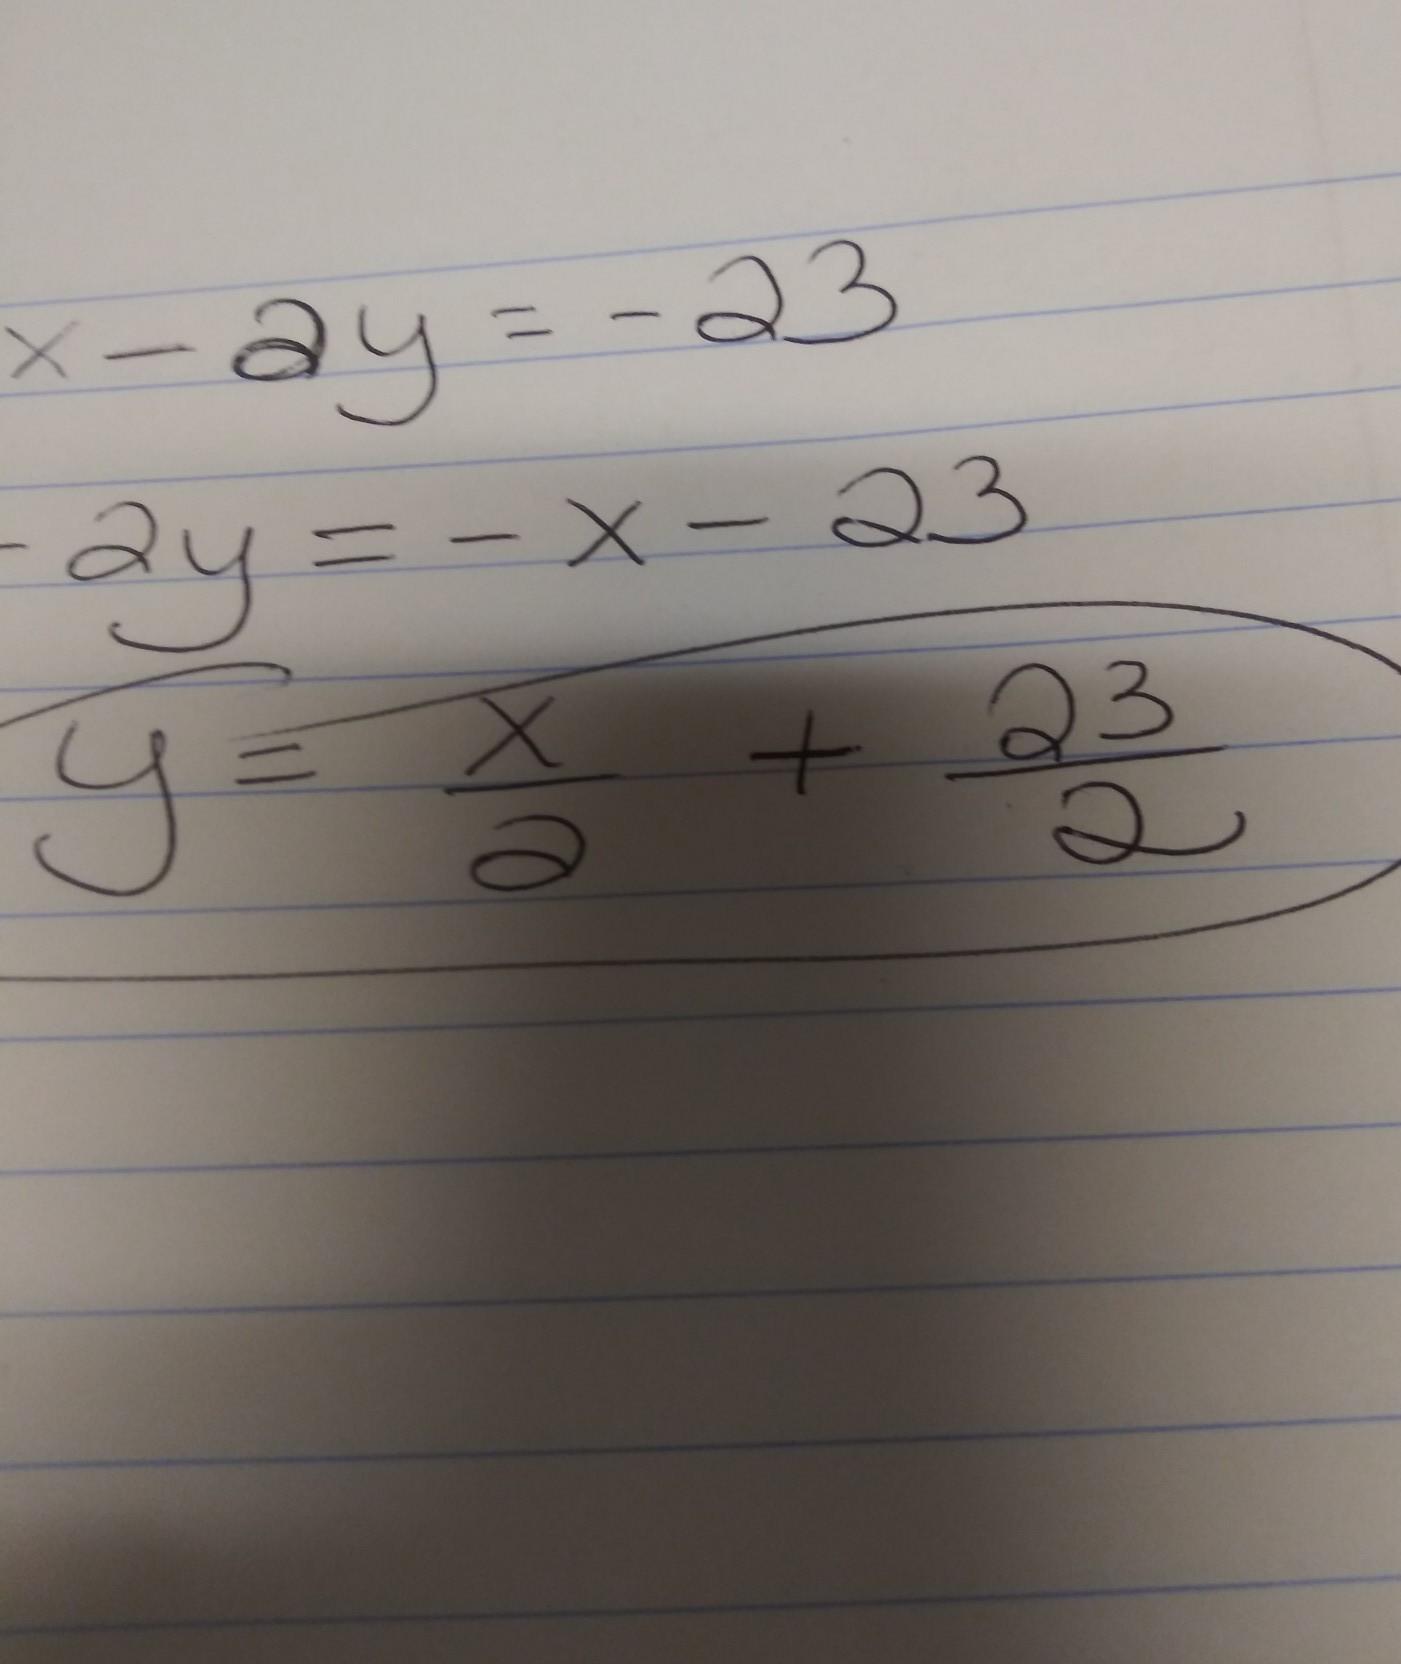 x - 2y = -23
-2y = -x - 23
y = x/2 + 23/2